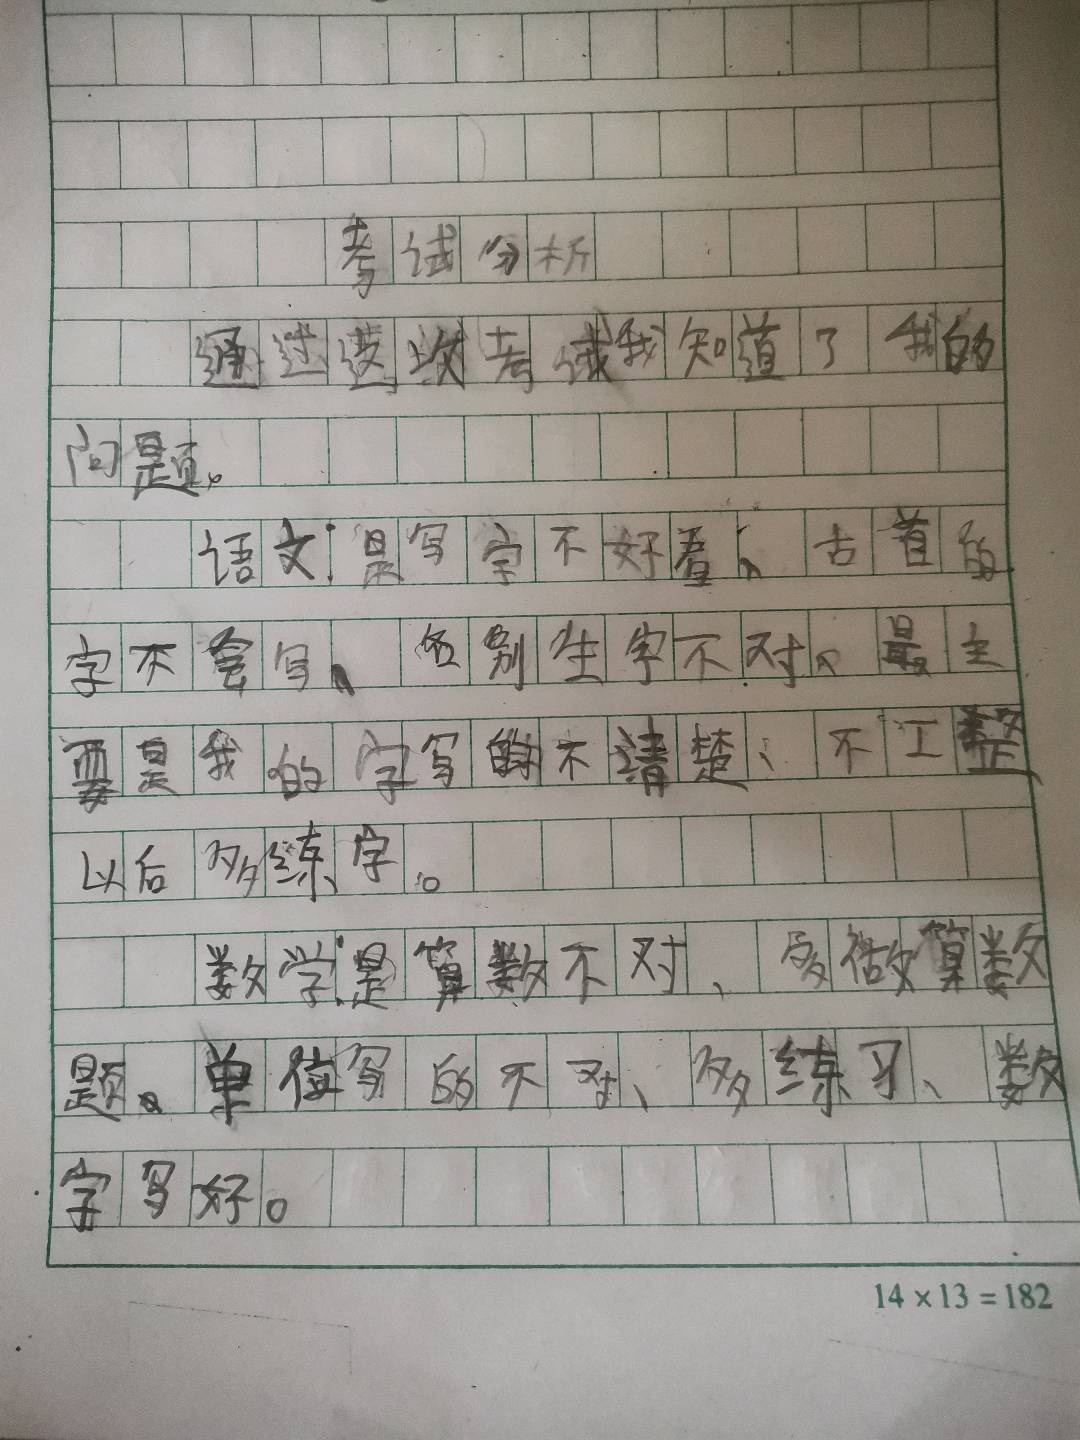 考试分析
通过这次考试我知道了我的
问题。
语文:是写字不好看、古首的
字不会写、各别生字不对。最主
要是我的字写的不清楚、不工整
以后多练字。
数学:是算数不对、多做算数
题。单位写的不对、多练习、数
字写好。
14×13=182